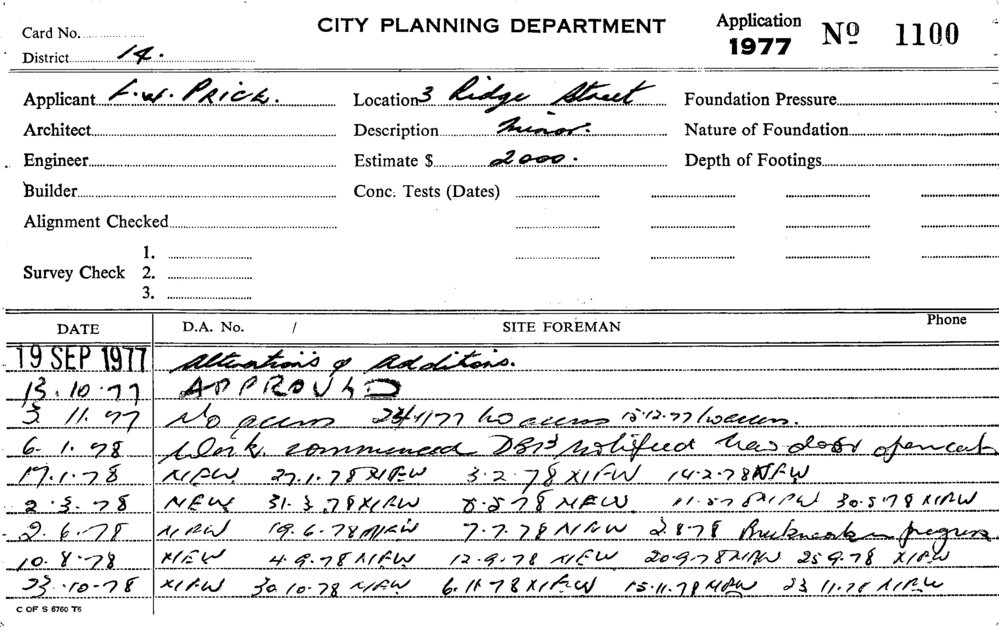 Card No.
CITY PLANNING DEPARTMENT
Application 1977 Nº 1100
District 14.
Applicant F.W. PRICE. Location 3 Ridge Street Foundation Pressure
Architect Description Minor. Nature of Foundation
Engineer Estimate $ 2000. Depth of Footings
Builder Conc. Tests (Dates)
Alignment Checked
Survey Check 1.
2.
3.
DATE D.A. No. / SITE FOREMAN Phone
19 SEP 1977 Alterations & Additions.
13.10.77 APPROVED
3 11.77 No access No access 15.12.77 No access.
6.1.78 Work commenced notified new door opening
17.1.78 NFW 27.1.78 NFW 3.2.78 NFW 14.2.78 NFW
2.3.78 NFW 31.3.78 NFW 8.5.78 NFW 30.5.78 NFW
2.6.78 NFW 19.6.78 NFW 7.7.78 NFW 2.8.78 Brickwork in progress
10.8.78 NFW 4.9.78 NFW 12.9.78 NFW 20.9.78 NFW 25.9.78 NFW
23.10.78 NFW 30.10.78 NFW 6.11.78 NFW 15.11.78 NFW 23 11.78 NFW
C OF S 6760 T6